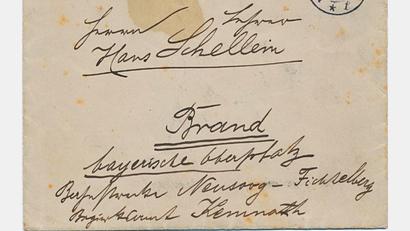 Herrn Lehrer
Hans Schellein
Brand
bayerische Oberpfalz
Bahnstrecke Neusorg - Fichtelberg
Bezirksamt Kemnath